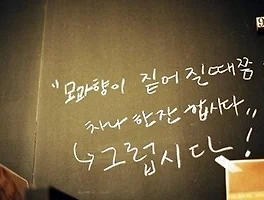 "모과향이 짙어 질때쯤
차나 한잔 합시다"
↳그럽시다!